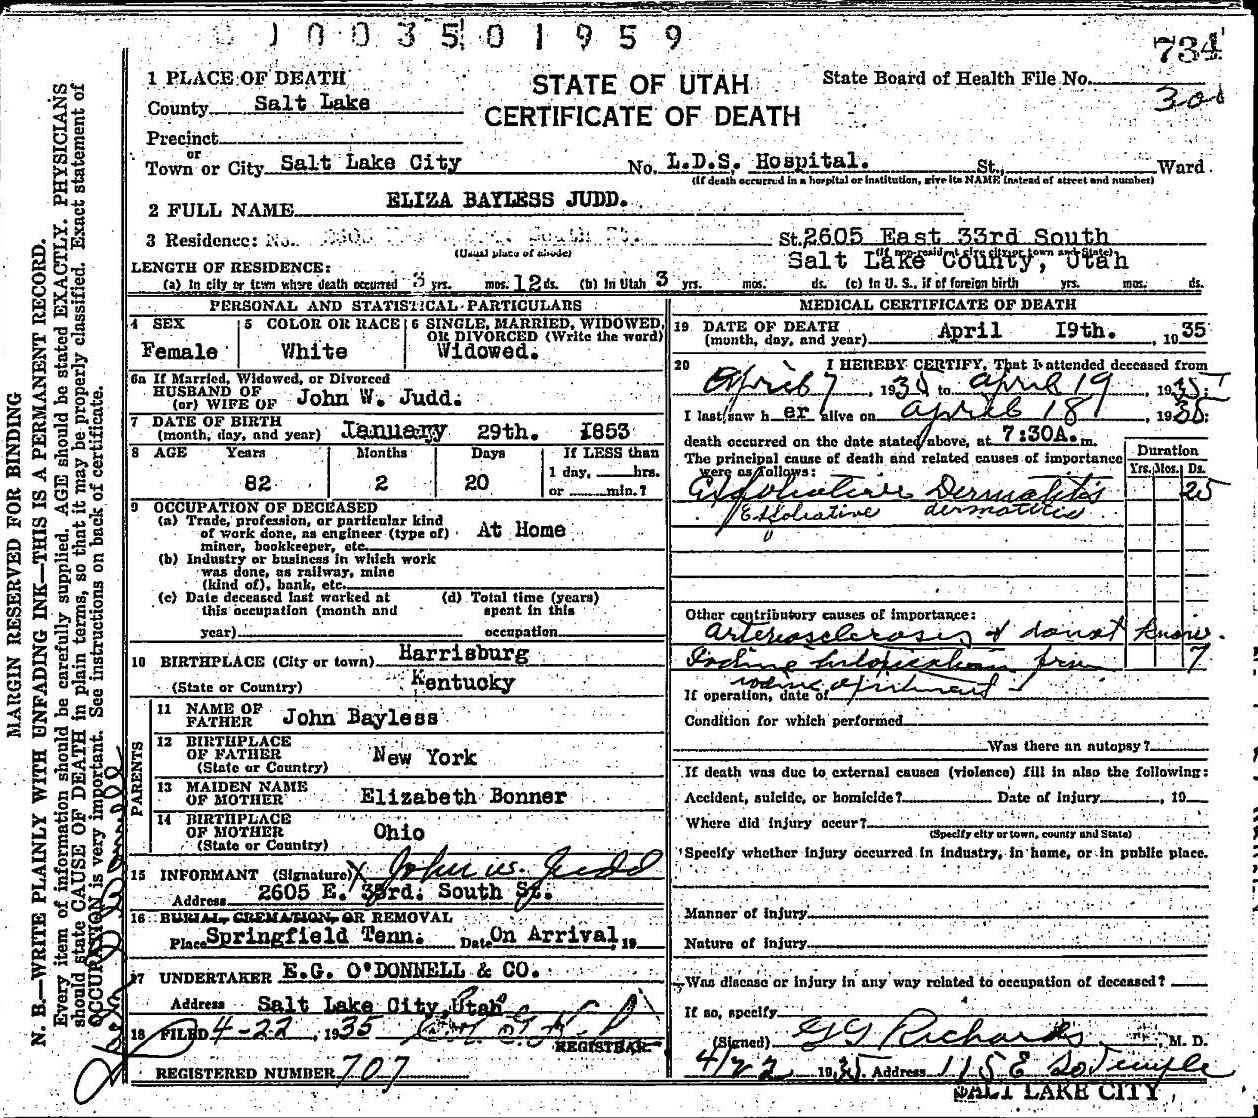 1003501959
734
1 PLACE OF DEATH
STATE OF UTAH
CERTIFICATE OF DEATH
State Board of Health File No.
300
County Salt Lake
Precinct
or
Town or City Salt Lake City No. L.D.S. Hospital. St., Ward
(If death occurred in a hospital or institution, give its NAME instead of street and number)
2 FULL NAME ELIZA BAYLESS JUDD.
3 Residence: No. St. 2605 East 33rd South
(Usual place of abode) (If non-resident give city or town and State)
Salt Lake County, Utah
LENGTH OF RESIDENCE:
(a) In city or town where death occurred 3 yrs. mos. 12 ds. (b) In Utah 3 yrs. mos. ds. (c) In U. S., if of foreign birth yrs. mos. ds.
PERSONAL AND STATISTICAL PARTICULARS
4 SEX
Female
5 COLOR OR RACE
White
6 SINGLE, MARRIED, WIDOWED,
OR DIVORCED (Write the word)
Widowed.
6a If Married, Widowed, or Divorced
HUSBAND OF
(or) WIFE OF John W. Judd.
7 DATE OF BIRTH
(month, day, and year) January 29th. 1853
8 AGE Years Months Days If LESS than
1 day, hrs.
82 2 20
or min.?
9 OCCUPATION OF DECEASED
(a) Trade, profession, or particular kind
of work done, as engineer (type of) At Home
miner, bookkeeper, etc.
(b) Industry or business in which work
was done, as railway, mine
(kind of), bank, etc.
(c) Date deceased last worked at (d) Total time (years)
this occupation (month and spent in this
year) occupation
10 BIRTHPLACE (City or town) Harrisburg
(State or Country) Kentucky
PARENTS
11 NAME OF
FATHER John Bayless
12 BIRTHPLACE
OF FATHER New York
(State or Country)
13 MAIDEN NAME
OF MOTHER Elizabeth Bonner
14 BIRTHPLACE
OF MOTHER Ohio
(State or Country)
15 INFORMANT (Signature) X John W. Judd
Address 2605 E. 33rd. South St.
16 BURIAL, CREMATION, OR REMOVAL
Place Springfield Tenn. Date On Arrival, 19
17 UNDERTAKER E.G. O'DONNELL & CO.
Address Salt Lake City, Utah
18 FILED 4-22, 1935
REGISTRAR
REGISTERED NUMBER 707
MEDICAL CERTIFICATE OF DEATH
19 DATE OF DEATH
(month, day, and year) April 19th. , 1935
20 I HEREBY CERTIFY, That I attended deceased from
April 7, 1935 to April 19, 1935:
I last saw her alive on April 18, 1935:
death occurred on the date stated above, at 7:30A.m.
The principal cause of death and related causes of importance
were as follows:
Duration
Yrs. Mos. Ds.
Exfoliative Dermatitis 25
Exfoliative dermatitis
Other contributory causes of importance:
Arteriosclerosis & do not know.
Iodine intoxication from 7
iodine ointment
If operation, date of
Condition for which performed
Was there an autopsy?
If death was due to external causes (violence) fill in also the following:
Accident, suicide, or homicide? Date of Injury , 19
Where did injury occur?
(Specify city or town, county and State)
Specify whether injury occurred in industry, in home, or in public place.
Manner of injury
Nature of injury
Was disease or injury in any way related to occupation of deceased?
If so, specify
(Signed) G G Richards , M. D.
4/22 1935 Address 115 E So Temple
SALT LAKE CITY
MARGIN RESERVED FOR BINDING
N. B.—WRITE PLAINLY WITH UNFADING INK—THIS IS A PERMANENT RECORD.
Every item of information should be carefully supplied. AGE should be stated EXACTLY. PHYSICIANS
should state CAUSE OF DEATH in plain terms, so that it may be properly classified. Exact statement of
OCCUPATION is very important. See instructions on back of certificate.